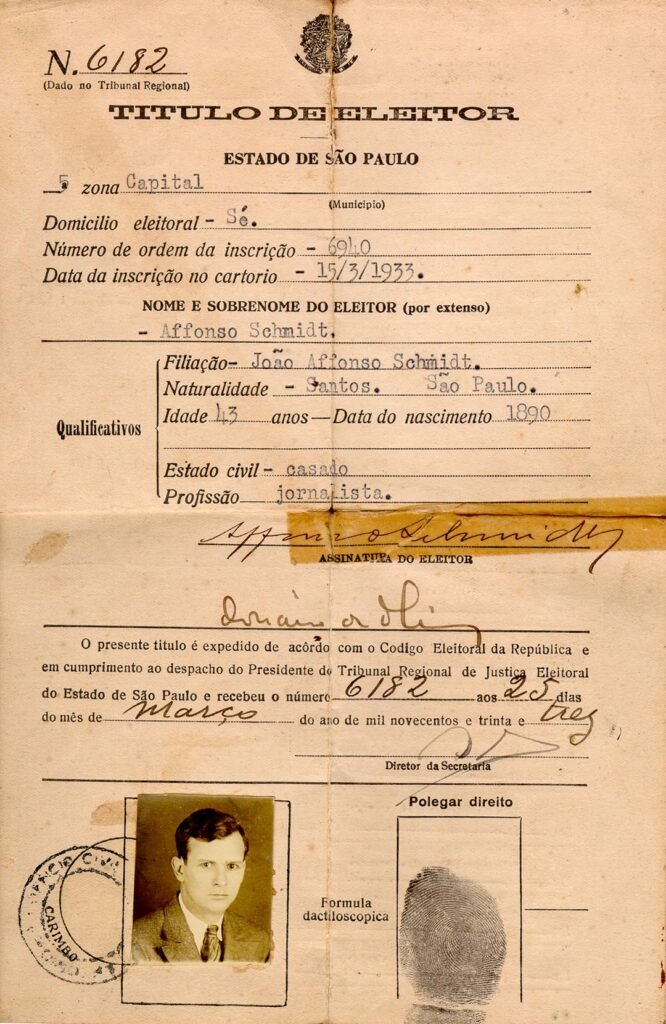 N. 6182
(Dado no Tribunal Regional)
TITULO DE ELEITOR
ESTADO DE SÃO PAULO
5 zona Capital
(Municipio)
Domicilio eleitoral - Sé.
Número de ordem da inscrição - 6940
Data da inscrição no cartorio - 15/3/1933.
NOME E SOBRENOME DO ELEITOR (por extenso)
- Affonso Schmidt.
Filiação- João Affonso Schmidt.
Naturalidade - Santos. São Paulo.
Qualificativos
Idade 43 anos—Data do nascimento 1890
Estado civil- casado
Profissão jornalista.
Affonso Schmidt
ASSINATURA DO ELEITOR
O presente titulo é expedido de acôrdo com o Codigo Eleitoral da República e
em cumprimento ao despacho do Presidente do Tribunal Regional de Justiça Eleitoral
do Estado de São Paulo e recebeu o número 6182 aos 25 dias
do mês de Março do ano de mil novecentos e trinta e trez
Diretor da Secretaria
Polegar direito
Formula
dactiloscopica
CARIMBO